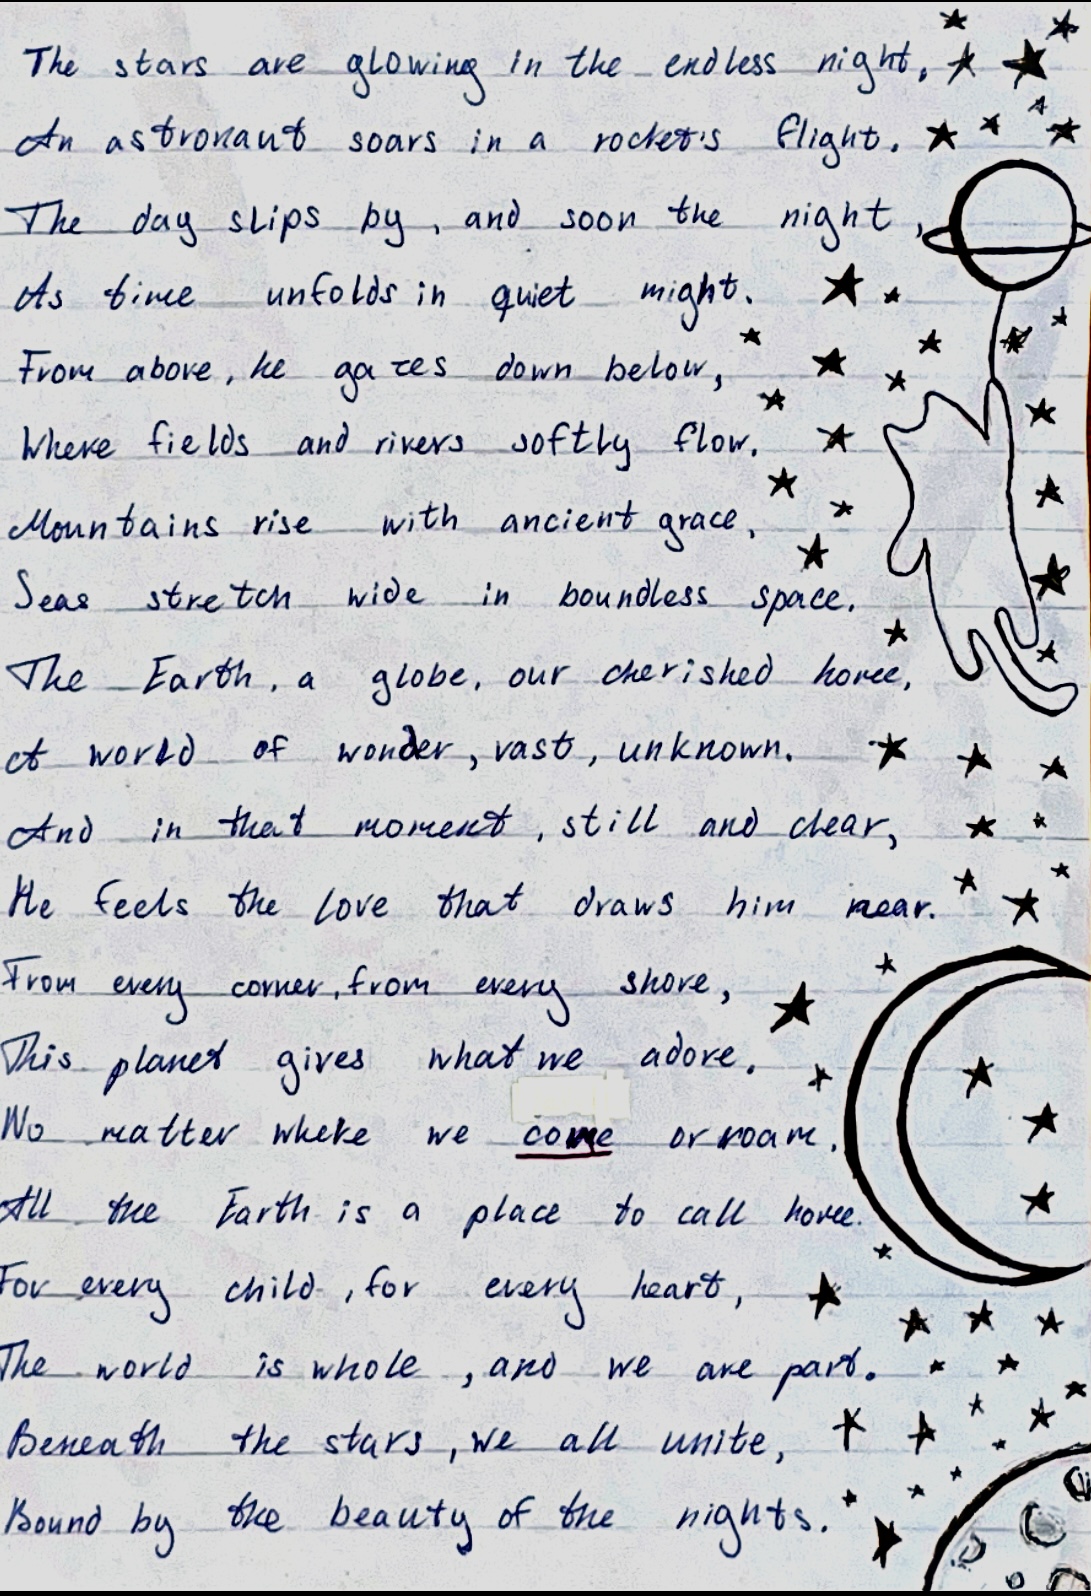 The stars are glowing in the endless night,
An astronaut soars in a rocket's flight.
The day slips by, and soon the night,
As time unfolds in quiet might.
From above, he gazes down below,
Where fields and rivers softly flow.
Mountains rise with ancient grace,
Seas stretch wide in boundless space.
The Earth, a globe, our cherished home,
A world of wonder, vast, unknown.
And in that moment, still and clear,
He feels the love that draws him near.
From every corner, from every shore,
This planet gives what we adore.
No matter where we come or roam,
All the Earth is a place to call home.
For every child, for every heart,
The world is whole, and we are part.
Beneath the stars, we all unite,
Bound by the beauty of the nights.